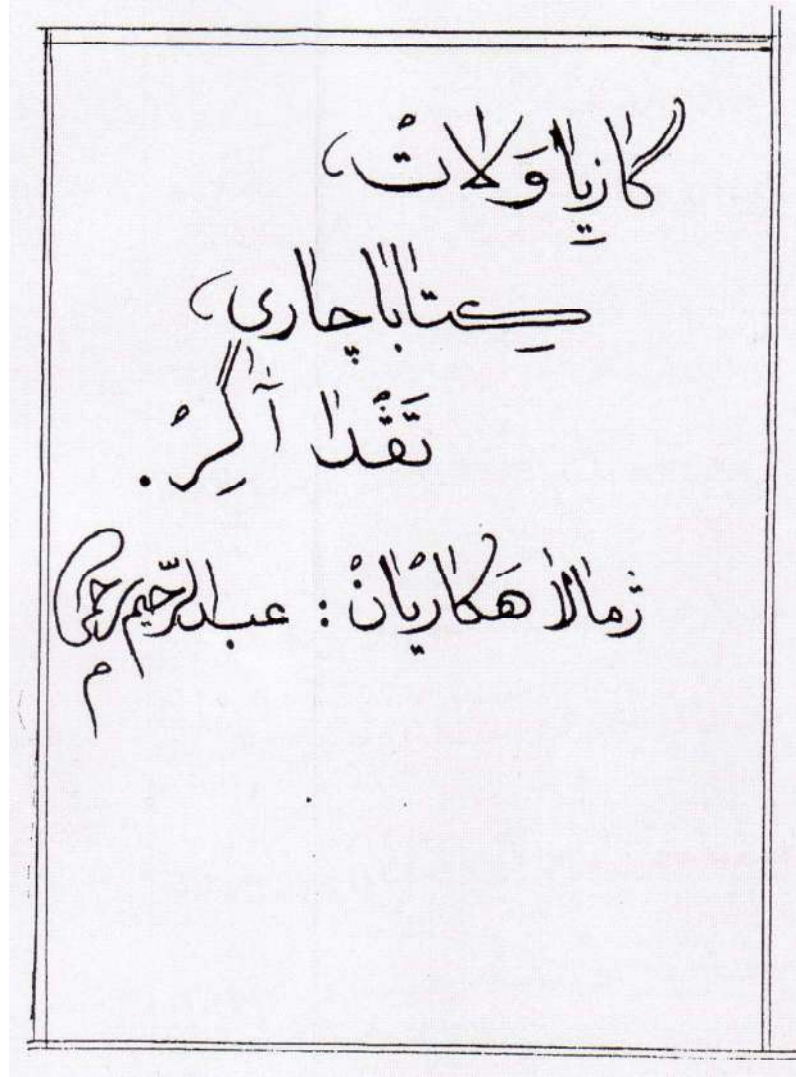 گازیا وَلاتْ،
کِتابا چاری،
تَڤْدا آگِرْ.
ژمالا هَکاریانْ: عبدالرّحیم رحمی